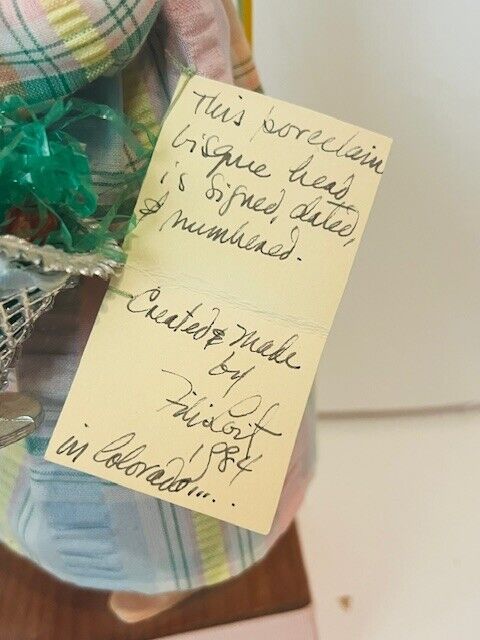 This porcelain
bisque head
is signed, dated,
& numbered.
Created & Made
by
1984
in Colorado....